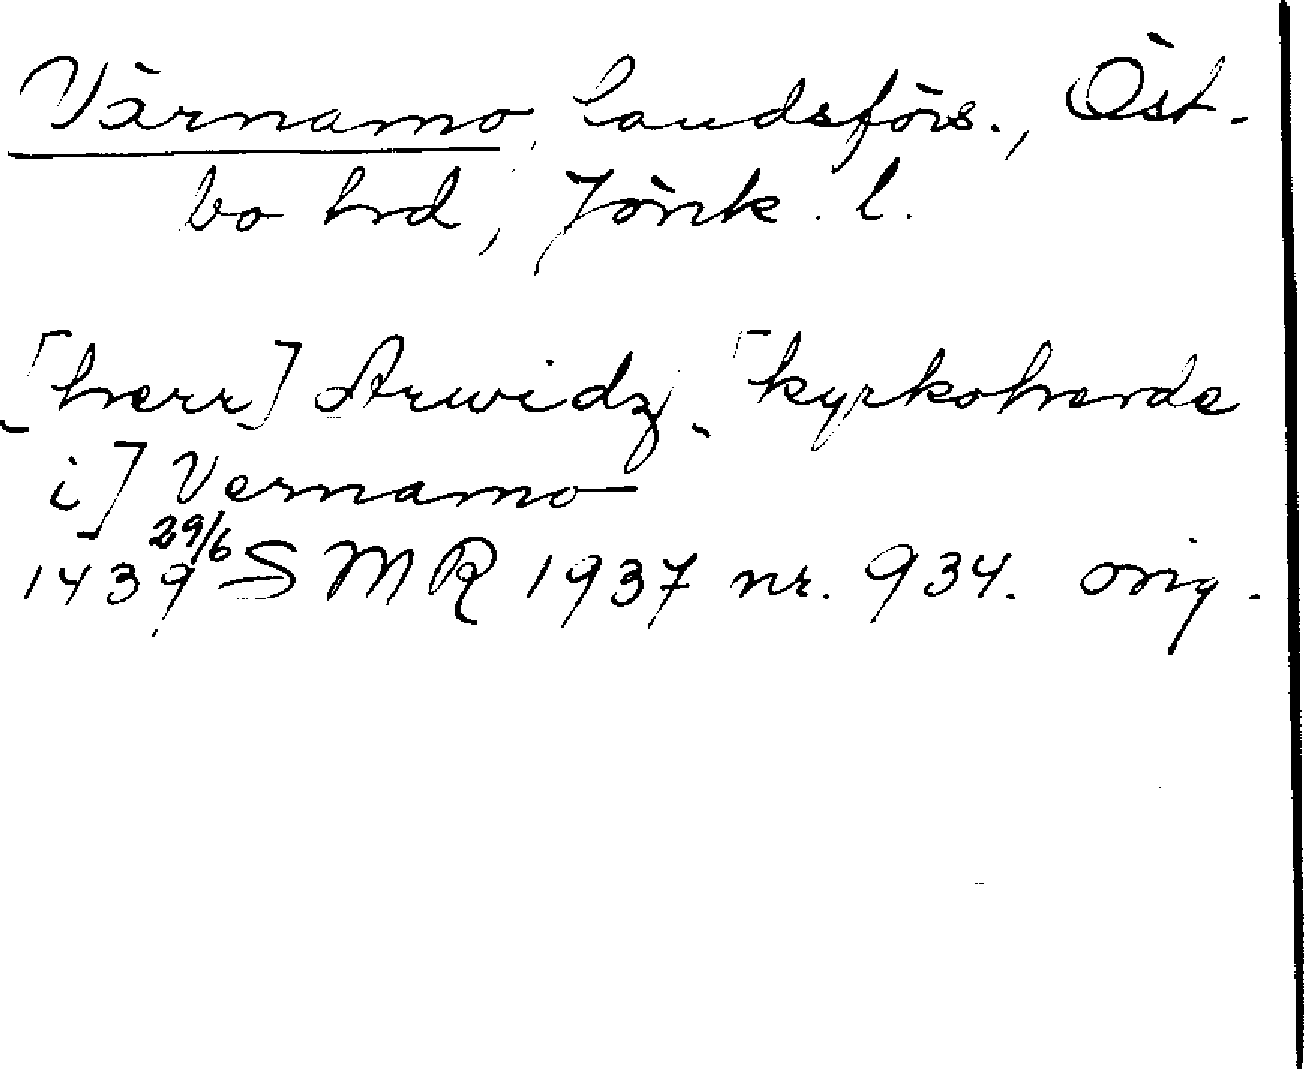 Värnamo, landsförs., Öst-
bo hrd, Jönk. l.
[herr] Arwidz [kyrkoherde
i] Vernamo
1439 29/6 SMR 1937 nr. 934. orig.